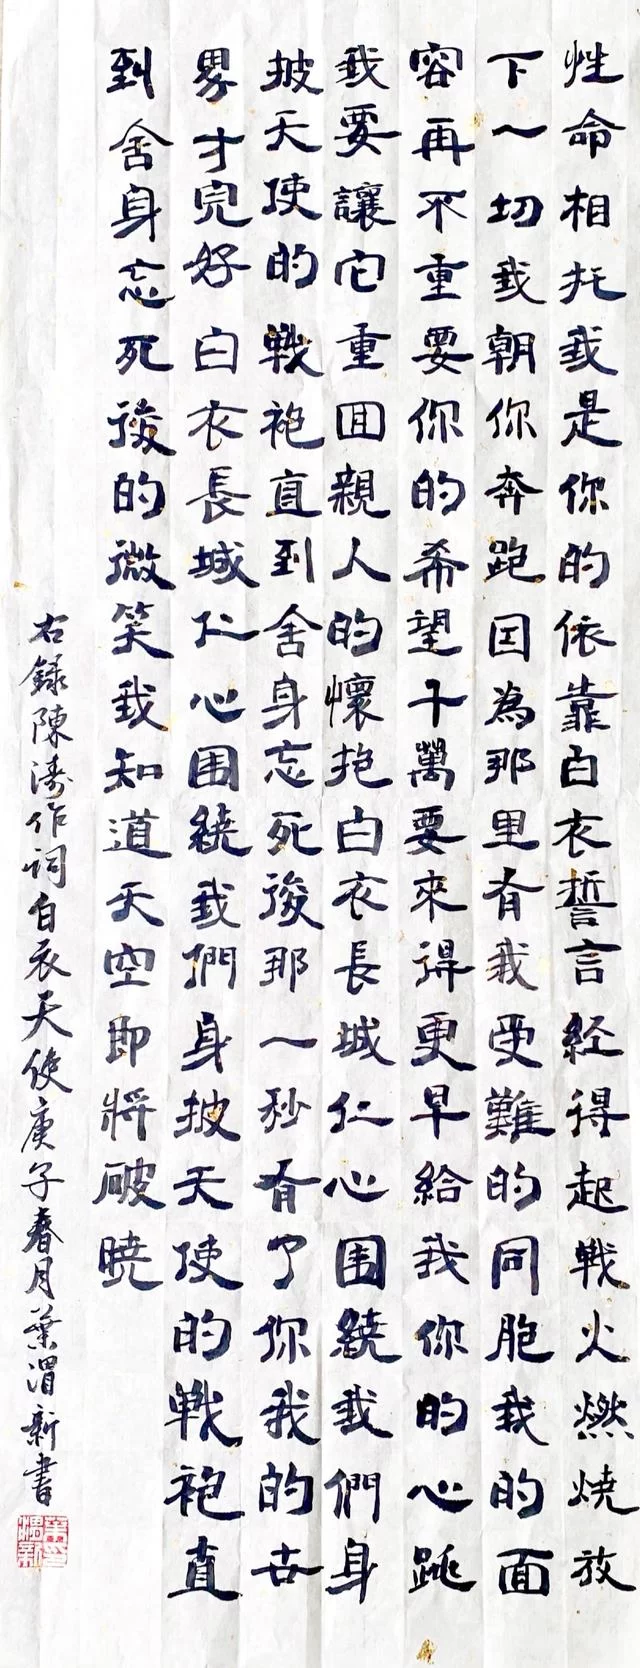 性命相托我是你的依靠白衣誓言经得起戰火燃燒放
下一切我朝你奔跑因為那里有我受難的同胞我的面
容再不重要你的希望千萬要來得更早給我你的心跳
我要讓它重回親人的懷抱白衣長城仁心围繞我們身
披天使的戰袍直到舍身忘死後那一秒有了你我的世
界才完好白衣長城仁心围繞我們身披天使的戰袍直
到舍身忘死後的微笑我知道天空即將破曉
右錄陳濤作詞白衣天使庚子春月葉渭新書
葉渭新